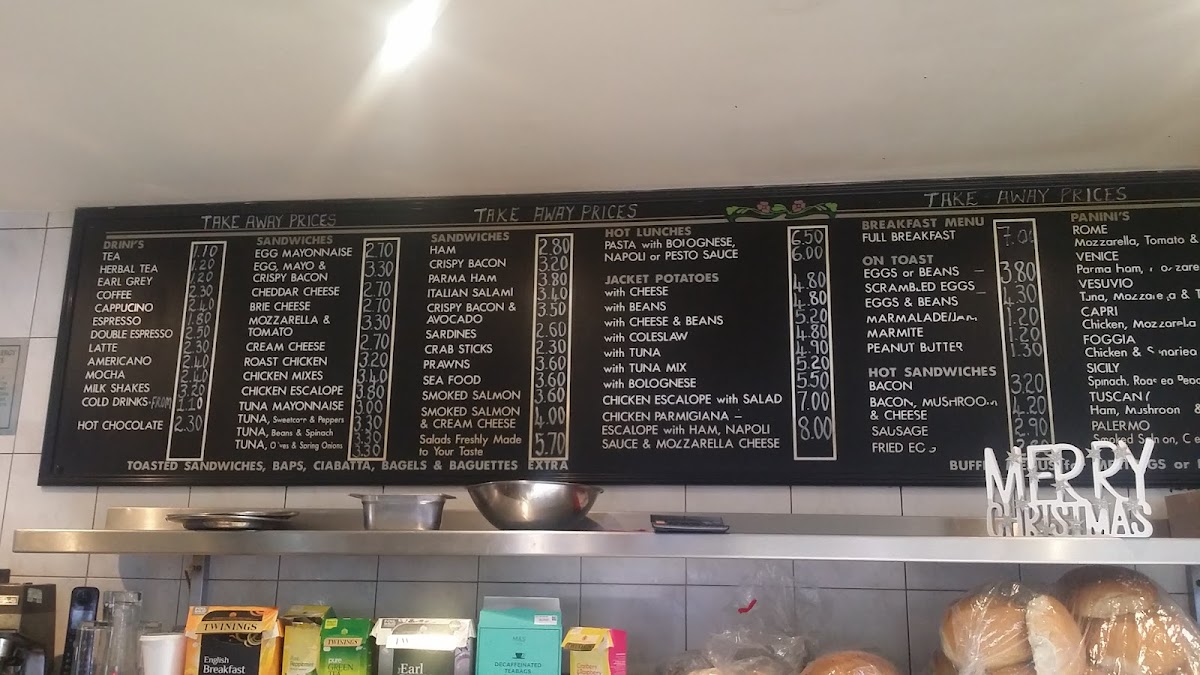 TAKE AWAY PRICES
DRINI'S
TEA 1.10
HERBAL TEA 1.20
EARL GREY 1.20
COFFEE 2.30
CAPPUCINO 2.40
ESPRESSO 1.80
DOUBLE ESPRESSO 2.50
LATTE 2.30
AMERICANO 2.40
MOCHA 2.40
MILK SHAKES 3.20
COLD DRINKS-FROM 1.10
HOT CHOCOLATE 2.30
SANDWICHES
EGG MAYONNAISE 2.70
EGG, MAYO &
CRISPY BACON 3.30
CHEDDAR CHEESE 2.70
BRIE CHEESE 2.70
MOZZARELLA &
TOMATO 3.30
CREAM CHEESE 2.70
ROAST CHICKEN 3.20
CHICKEN MIXES 3.40
CHICKEN ESCALOPE 3.80
TUNA MAYONNAISE 3.00
TUNA, Sweetcorn & Peppers 3.30
TUNA, Beans & Spinach 3.30
TUNA, O ves & Spring Onions 3.30
TAKE AWAY PRICES
SANDWICHES
HAM 2.80
CRISPY BACON 3.20
PARMA HAM 3.80
ITALIAN SALAMI 3.40
CRISPY BACON & 3.50
AVOCADO
SARDINES 2.60
CRAB STICKS 2.30
PRAWNS 3.60
SEA FOOD 3.60
SMOKED SALMON 3.60
SMOKED SALMON
& CREAM CHEESE 4.00
Salads Freshly Made
to Your Taste 5.70
TOASTED SANDWICHES, BAPS, CIABATTA, BAGELS & BAGUETTES EXTRA
HOT LUNCHES
PASTA with BOLOGNESE, 6.50
NAPOLI or PESTO SAUCE 6.00
JACKET POTATOES
with CHEESE 4.80
with BEANS 4.80
with CHEESE & BEANS 5.20
with COLESLAW 4.80
with TUNA 4.90
with TUNA MIX 5.20
with BOLOGNESE 5.50
CHICKEN ESCALOPE with SALAD 7.00
CHICKEN PARMIGIANA –
ESCALOPE with HAM, NAPOLI 8.00
SAUCE & MOZZARELLA CHEESE
TAKE AWAY PRICES
BREAKFAST MENU
FULL BREAKFAST
ON TOAST
EGGS or BEANS – 3.80
SCRAMBLED EGGS – 4.30
EGGS & BEANS
MARMALADE/JAM, 1.20
MARMITE 1.20
PEANUT BUTTER 1.30
HOT SANDWICHES
BACON 3.20
BACON, MUSHROOM 4.20
& CHEESE
SAUSAGE 2.90
FRIED EG S
PANINI'S
ROME
Mozzarella, Tomato &
VENICE
Parma ham,
VESUVIO
Tuna,
CAPRI
Chicken, Mozzarella
FOGGIA
Chicken &
SICILY
Spinach,
TUSCAN
Ham, Mushroom &
PALERMO
Smoked
MERRY
CHRISTMAS
TWININGS
English
Breakfast
TWININGS
pure
GREEN
Earl
DECAFFEINATED
TEABAGS